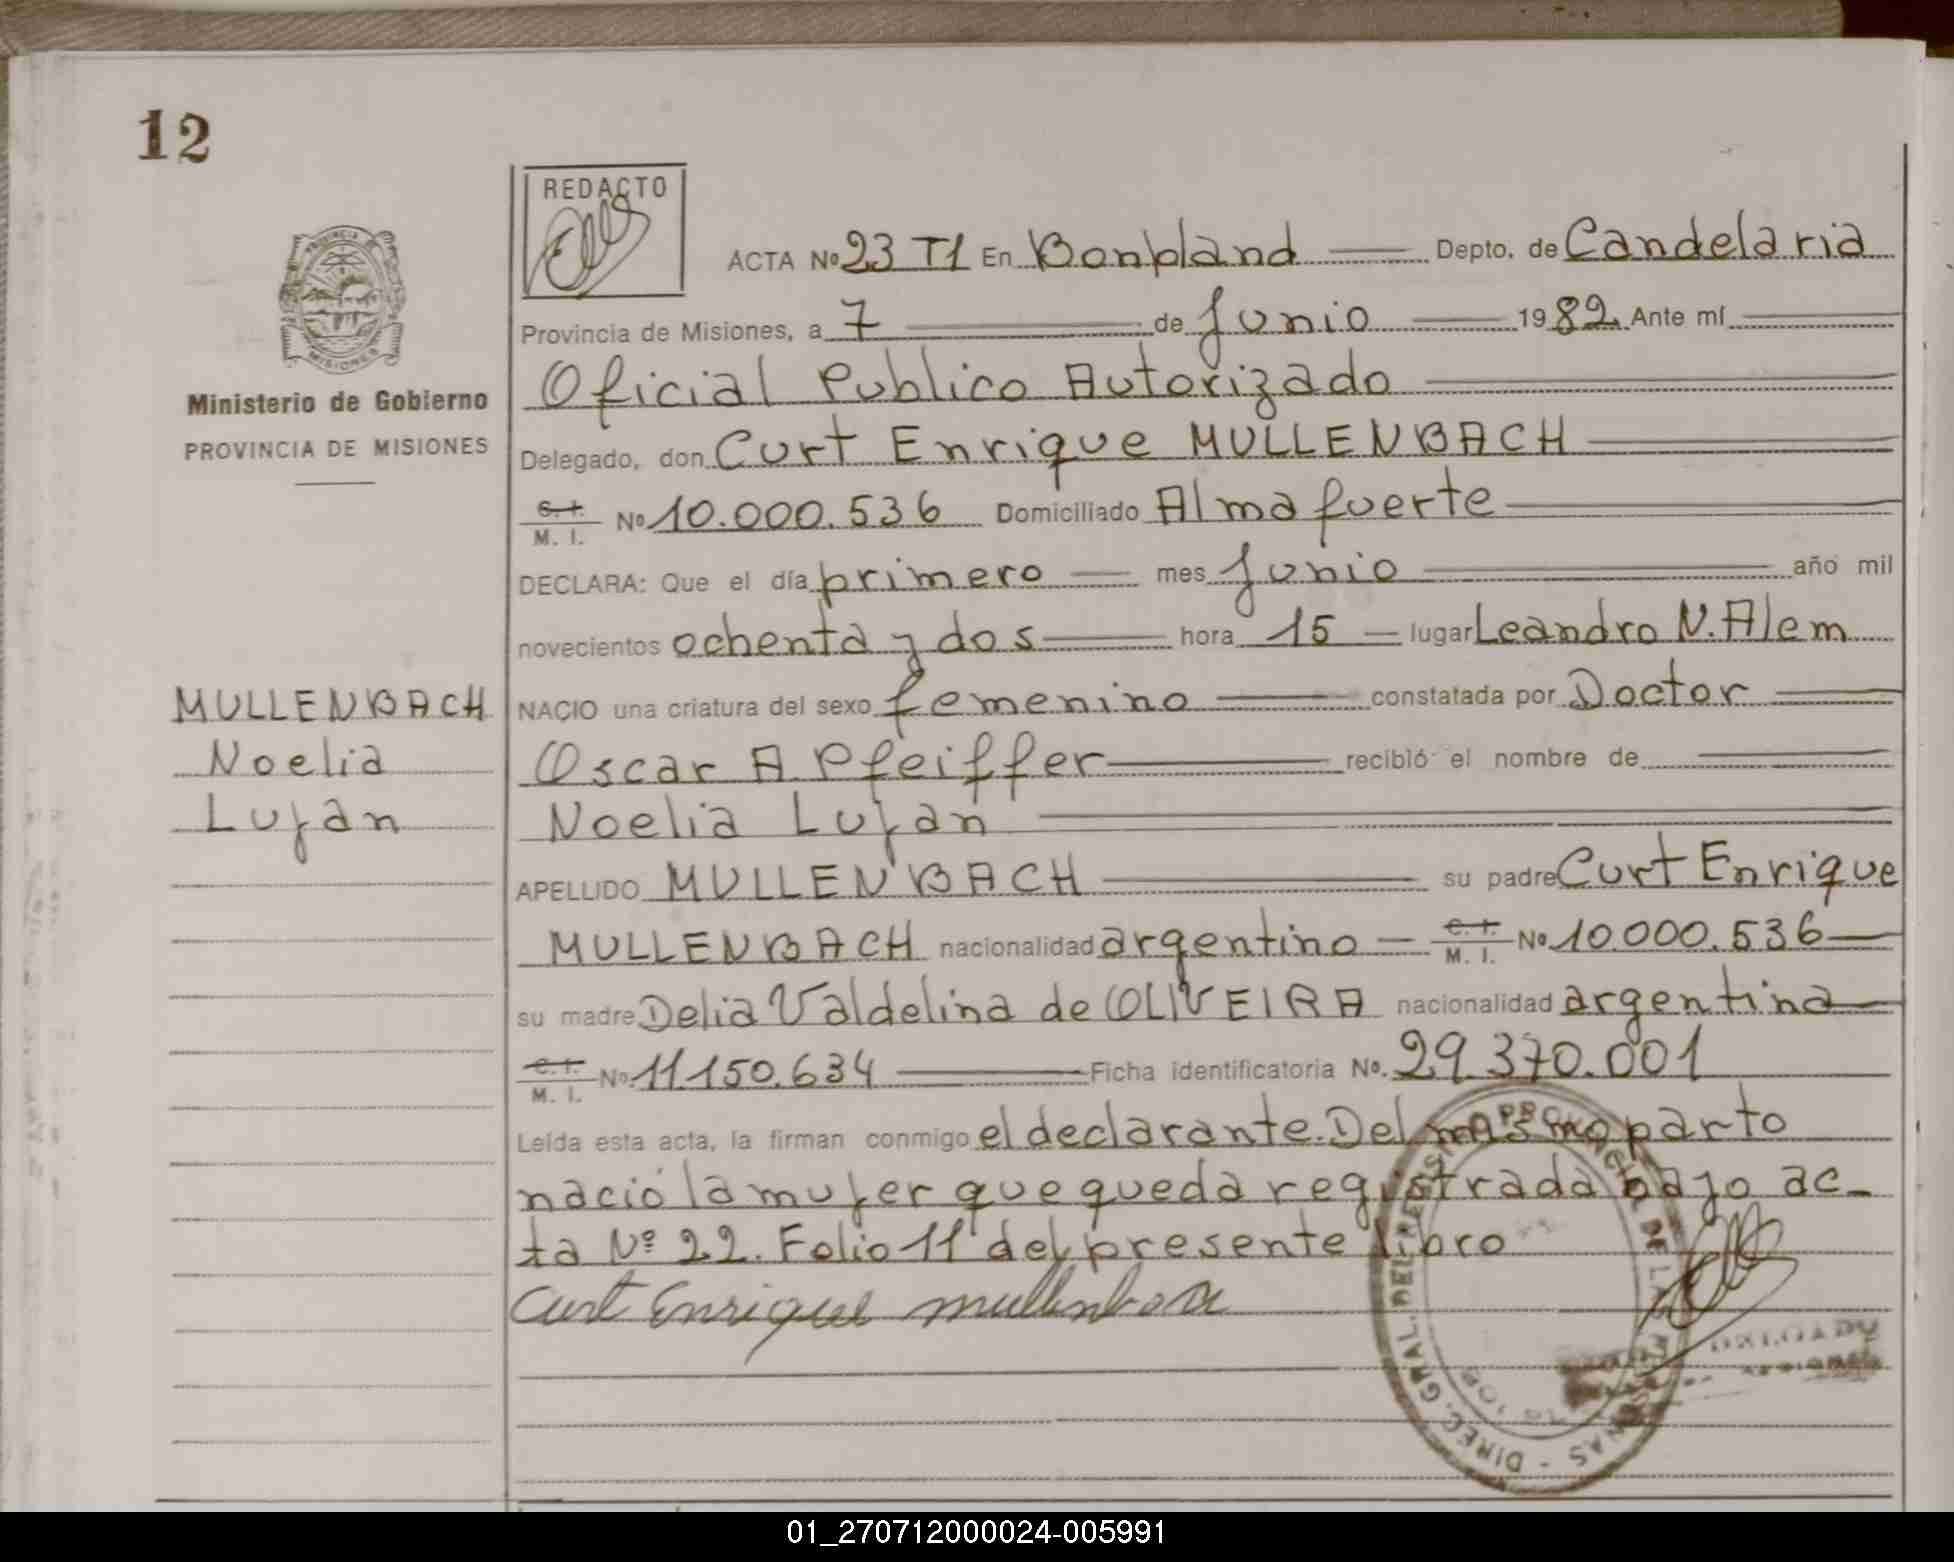 12
REDACTO
ACTA Nº 23 T1 En Bonpland Depto. de Candelaria
Provincia de Misiones, a 7 de Junio 1982 Ante mí
Oficial Publico Autorizado
Delegado, don Curt Enrique MULLENBACH
C. I. M. I. Nº 10.000.536 Domiciliado Almafuerte
DECLARA: Que el día primero mes Junio año mil
novecientos ochenta y dos hora 15 lugar Leandro N. Alem
NACIO una criatura del sexo femenino constatada por Doctor
Oscar A. Pfeiffer recibió el nombre de
Noelia Lujan
APELLIDO MULLENBACH su padre Curt Enrique
MULLENBACH nacionalidad argentino C. I. M. I. Nº 10.000.536
su madre Delia Valdelina de OLIVEIRA nacionalidad argentina
C. I. M. I. Nº 11.150.634 Ficha identificatoria Nº. 29.370.001
Leída esta acta, la firman conmigo el declarante. Del mismo parto
nació la mujer que queda registrada bajo ac-
ta Nº 22. Folio 11 del presente libro
Curt Enrique Mullenbach
PROVINCIA DE MISIONES
Ministerio de Gobierno
PROVINCIA DE MISIONES
MULLENBACH
Noelia
Lujan
DIREC. GRAL. DEL REGISTRO PROVINCIAL DE LAS PERSONAS
DELEGADO
01_270712000024-005991